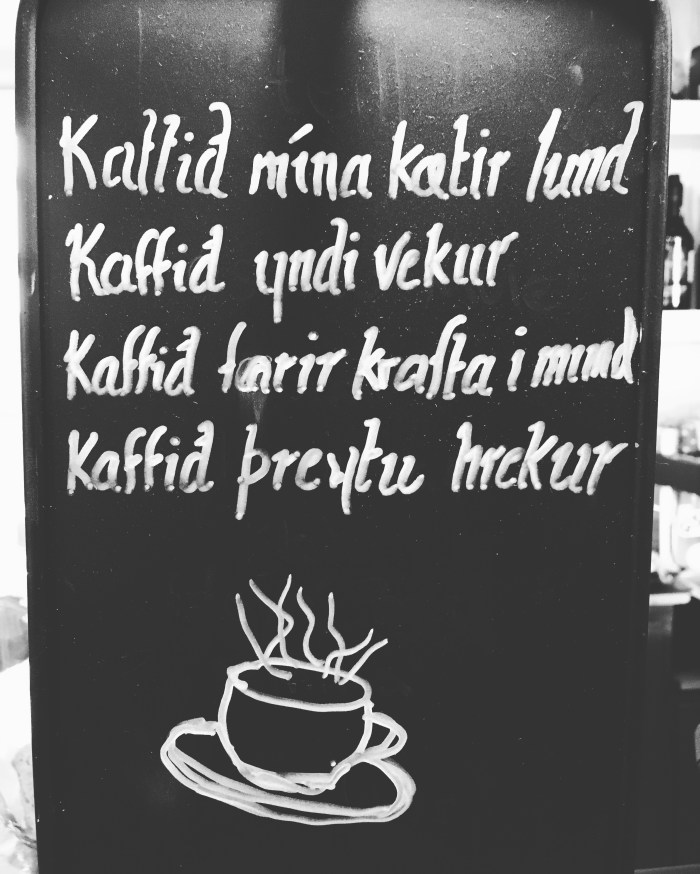 Kaffið mína kætir lund
Kaffið yndi vekur
Kaffið færir krafta i mund
Kaffið þreytu hrekur